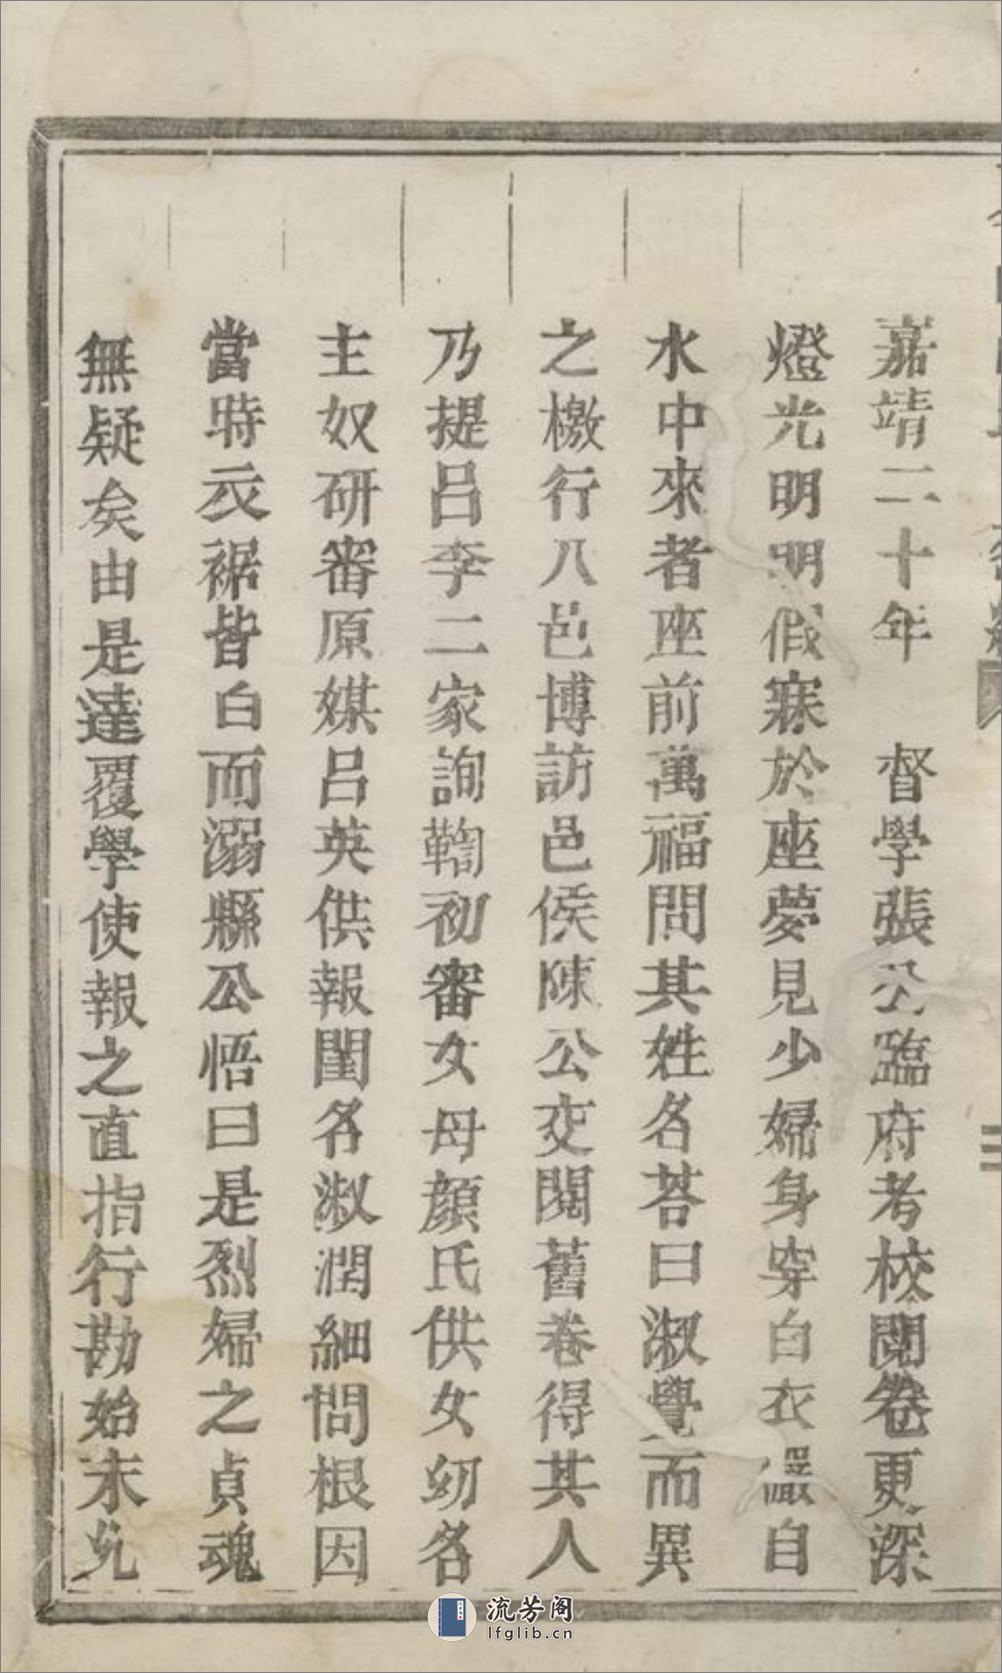 嘉靖二十年 督學張公臨府考校閱卷更深
燈光明明假寐於座夢見少婦身穿白衣儼自
水中來者座前萬福問其姓名荅曰淑覺而異
之檄行八邑博訪邑侯陳公交閱舊卷得其人
乃提呂李二家詢鞫初審女母顏氏供女幼名
主奴研審原媒呂英供報閨名淑潤細問根因
當時衣裾皆白而溺縣公悟曰是烈婦之貞魂
無疑矣由是達覆學使報之直指行勘始末允
流芳阁
lfglib.cn